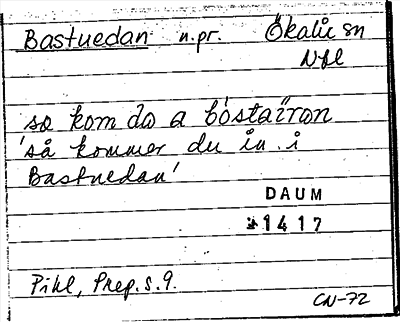 Bastuedan n.pr. Ökalix sn
Nbl
so kom do a bóstaïron
'så kommer du in i
Bastuedan'
DAUM
1417
Pihl, Prep. s. 9.
CN-72